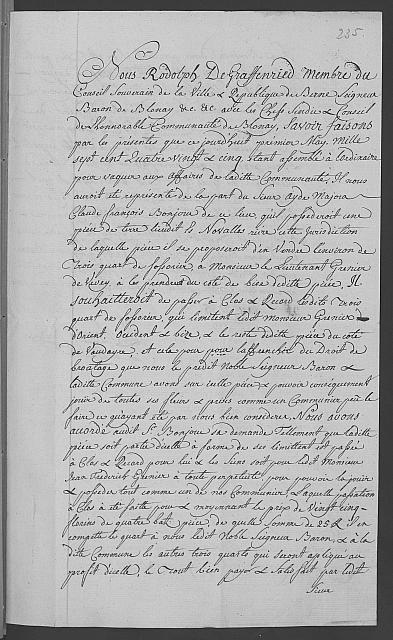 235.
Nous Rodolph De Graffenried Membre du
Conseil Souverain de la Ville & Republique de Berne Seigneur
Baron de Blonay &c. &c. avec les Chefs Sindic & Conseil
de L'honnorable Communauté de Blonay, Savoir faisons
par les presentes que ce jourd'huit premier May, Mille
sept cent Quatre Vingt & cinq, Etant assemblé à l'ordinaire
pour vaquer aux affaires de laditte Communauté, Il nous
auroit été représenté de la part du Sieur Ayde Major
Claude François Bonjour de ce lieu, qu'il possederoit une
piece de terre lieudit és Novalles rière cette Jurisdiction
de laquelle piece il se proposeroit d'en Vendre l'environ de
Trois quart de fossorier, à Monsieur le Lieutenant Grenier
de Vevey, à les prendre du coté de bise deditte piece, Il
souhaitteroit de passer à Clos & Record ledits Trois
quart de fossorier, qui limitent ledit Monsieur Grenier
d'Orient, Occident & bize, & le reste deditte piece du coté
de Vaudayre, et cela pour l'affranchir du Droit de
brootage que nous le prédit Noble Seigneur Baron &
laditte Commune avons sur icelle piece & pouvoir consequemment
jouir de toutes ses fleurs & prises comme un Communier peu le
faire ce quayant été par nous bien considerer, Nous avons
accordé audit Sr. Bonjour sa demande Tellement que laditte
piece soit partie d'icelle à forme de ses limittent est passée
à Clos & Record pour lui & les siens soit pour ledit Monsieur
Jean Frederich Grenier à toute perpetuité pour pouvoir la jouir
& posseder tout comme un de nos Communier, & laquelle passation
à Clos a été faite pour & moyennant le prix de Vingt cinq
florins de quatre batz piece, de quelle somme de 25 fl il en
compette le quart à nous ledit Noble Seigneur Baron, & à la
ditte Commune les autres trois quarts qui seront appliqué au
profit d'icelle, le Tout bien payé & Satisfait par ledit
Sieur